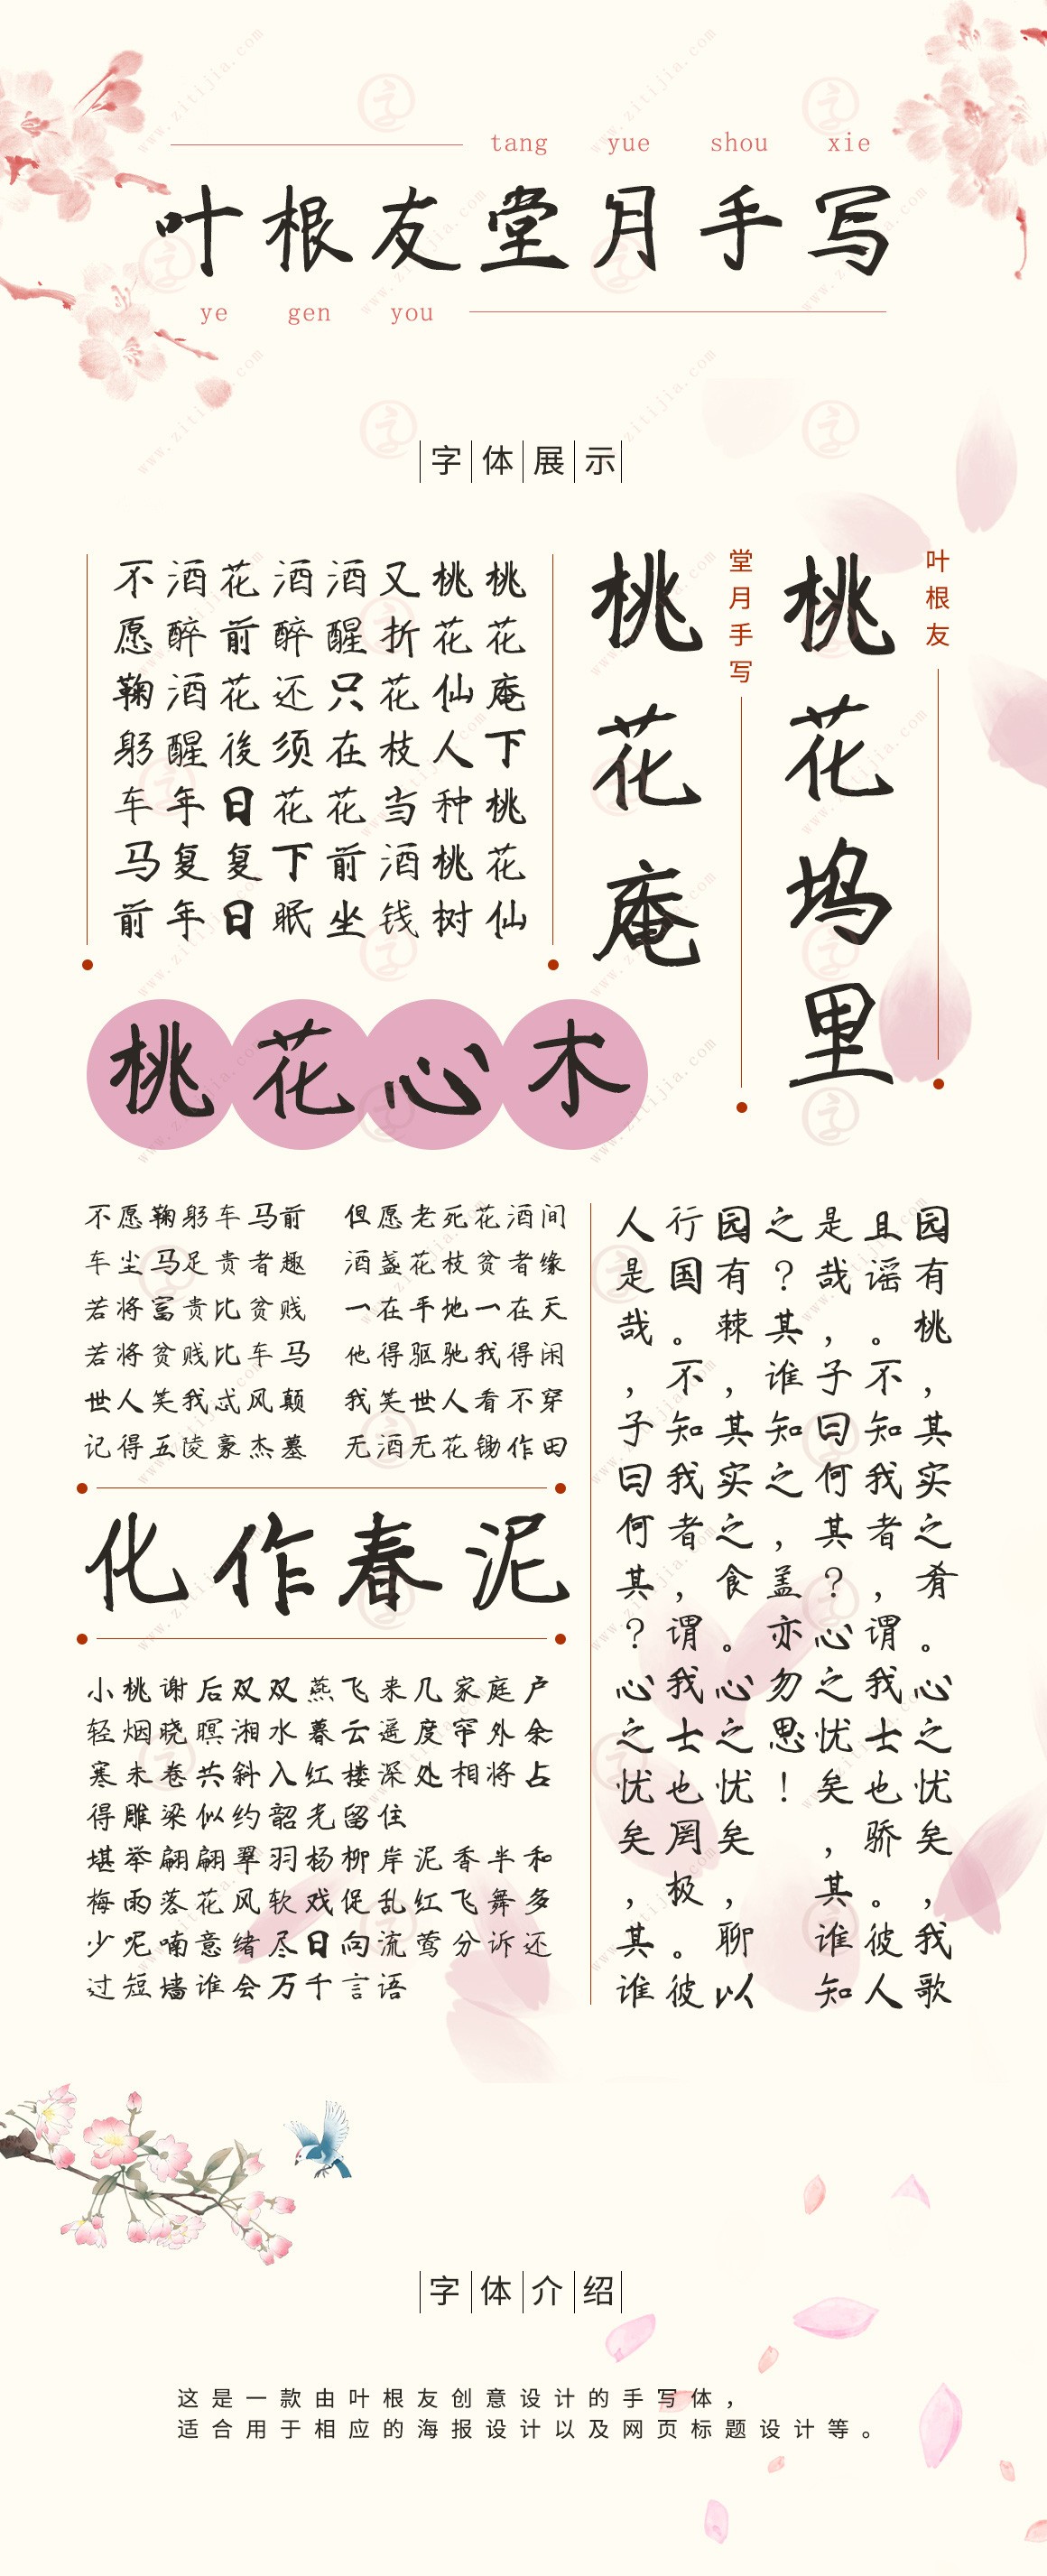 tang yue shou xie
叶根友堂月手写
ye gen you
字体展示
叶根友
桃花坞里
堂月手写
桃花庵
桃花庵下桃花仙
桃花仙人种桃树
又折花枝当酒钱
酒醒只在花前坐
酒醉还须花下眠
花前花後日复日
酒醉酒醒年复年
不愿鞠躬车马前
桃花心木
不愿鞠躬车马前 但愿老死花酒间
车尘马足贵者趣 酒盏花枝贫者缘
若将富贵比贫贱 一在平地一在天
若将贫贱比车马 他得驱驰我得闲
世人笑我忒风颠 我笑世人看不穿
记得五陵豪杰墓 无酒无花锄作田
园有桃，其实之肴。心之忧矣，我歌
且谣。不知我者，谓我士也骄。彼人
是哉，子曰何其？心之忧矣，其谁知
之？其谁知之，盖亦勿思！
园有棘，其实之食。心之忧矣，聊以
行国。不知我者，谓我士也罔极。彼
人是哉，子曰何其？心之忧矣，其谁
化作春泥
小桃谢后双双燕飞来几家庭户
轻烟晓暝湘水暮云遥度帘外余
寒未卷共斜入红楼深处相将占
得雕梁似约韶光留住
堪举翩翩翠羽杨柳岸泥香半和
梅雨落花风软戏促乱红飞舞多
少呢喃意绪尽日向流莺分诉还
过短墙谁会万千言语
字体介绍
这是一款由叶根友创意设计的手写体，
适合用于相应的海报设计以及网页标题设计等。
www.zitijia.com